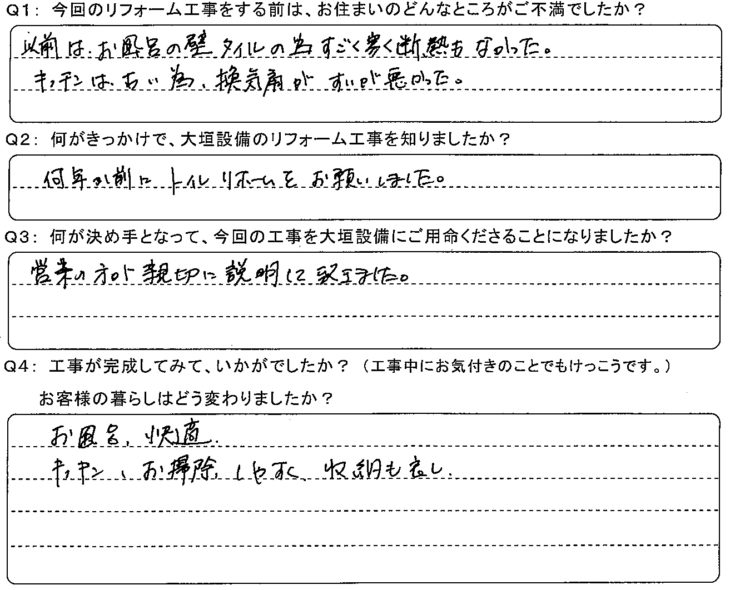 Q1: 今回のリフォーム工事をする前は、お住まいのどんなところがご不満でしたか?
以前は、お風呂の壁タイルの為すごく寒く断熱もなかった。
キッチンは、古い為、換気扇がすいが悪かった。
Q2: 何がきっかけで、大垣設備のリフォーム工事を知りましたか?
何年か前にトイレリホームをお願いしました。
Q3: 何が決め手となって、今回の工事を大垣設備にご用命くださることになりましたか?
営業の方が親切に説明して
Q4: 工事が完成してみて、いかがでしたか? (工事中にお気付きのことでもけっこうです。)
お客様の暮らしはどう変わりましたか?
お風呂、快適.
キッチン、お掃除、しやすく、収納も良し.